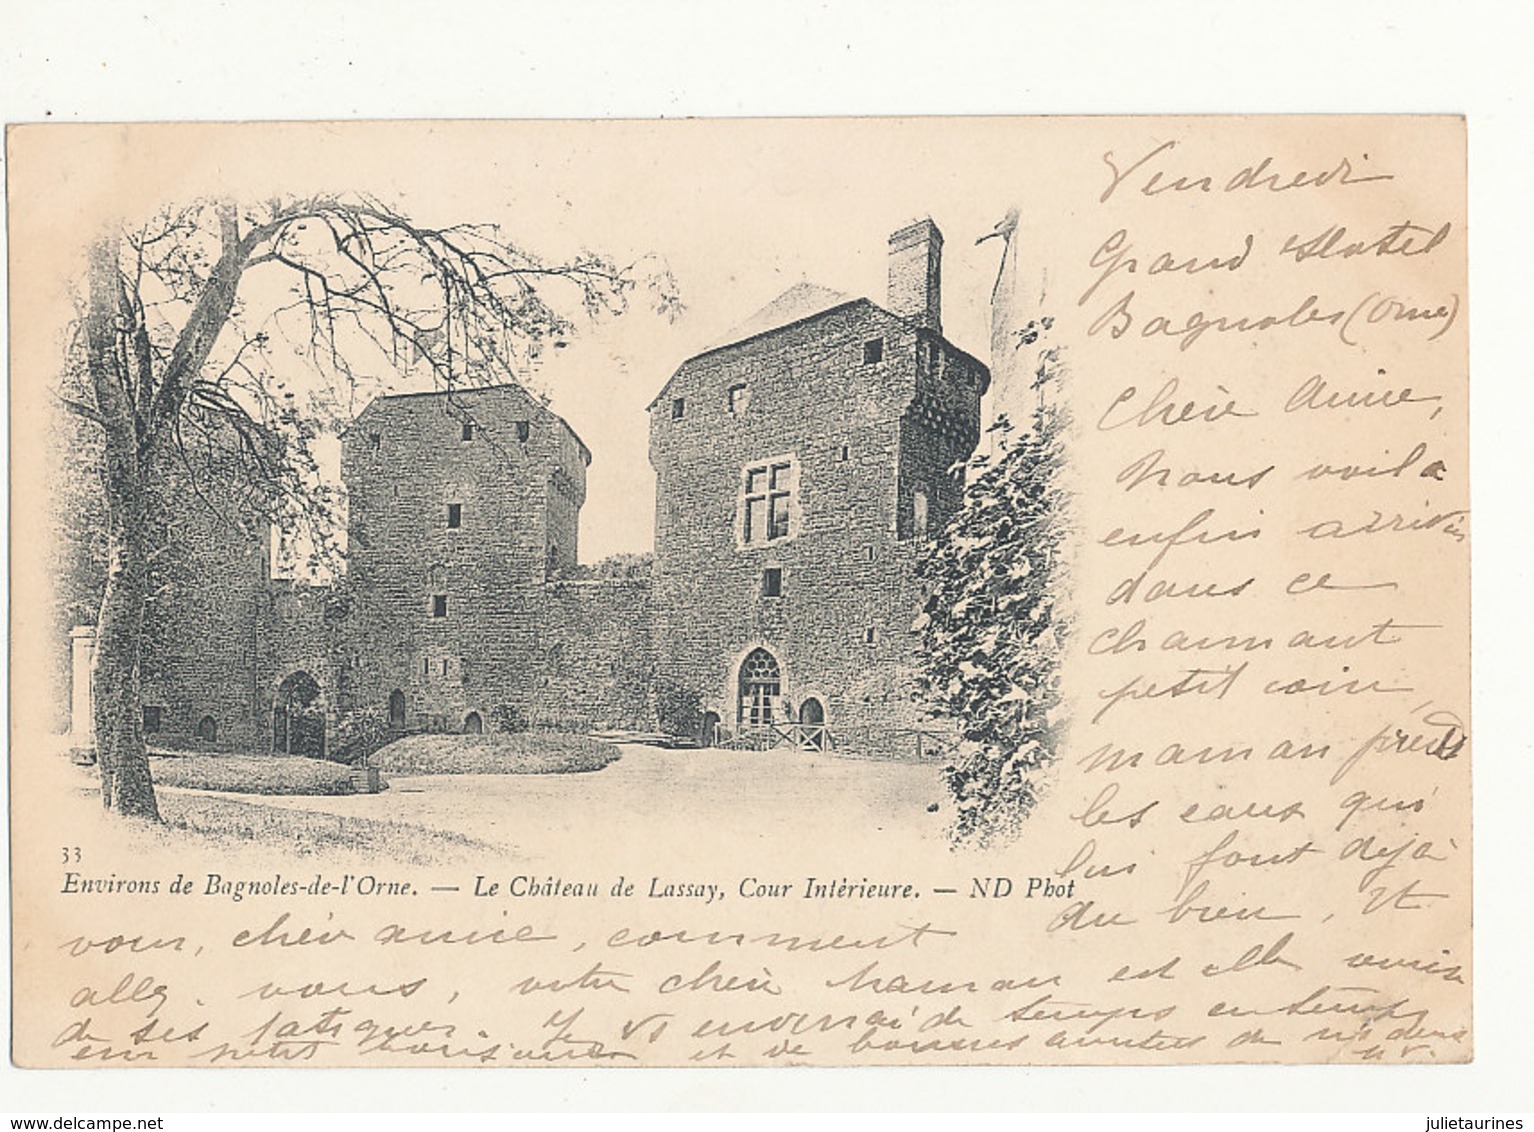 Vendredi
Grand Hotel
Bagnoles (Orne)
Chère Amie,
Nous voilà
enfin arrivées
dans ce
charmant
petit coin,
maman prend
les eaux qui
lui font déjà
du bien, Et
33
Environs de Bagnoles-de-l'Orne. — Le Château de Lassay, Cour Intérieure. — ND Phot
vous, chère amie, comment
allez-vous, votre chère maman est elle remise
de ses fatigues. Je vs enverrai de temps en temps
un petit bonjour et de bonnes amitiés de
delcampe.net
julietaurines